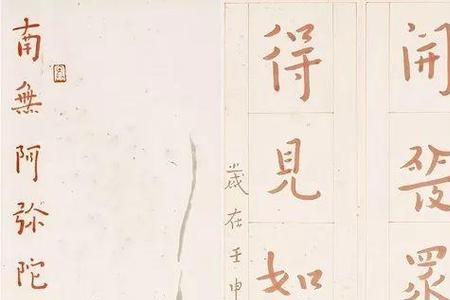 開發眾
得見如
歲在壬申
南無阿弥陀